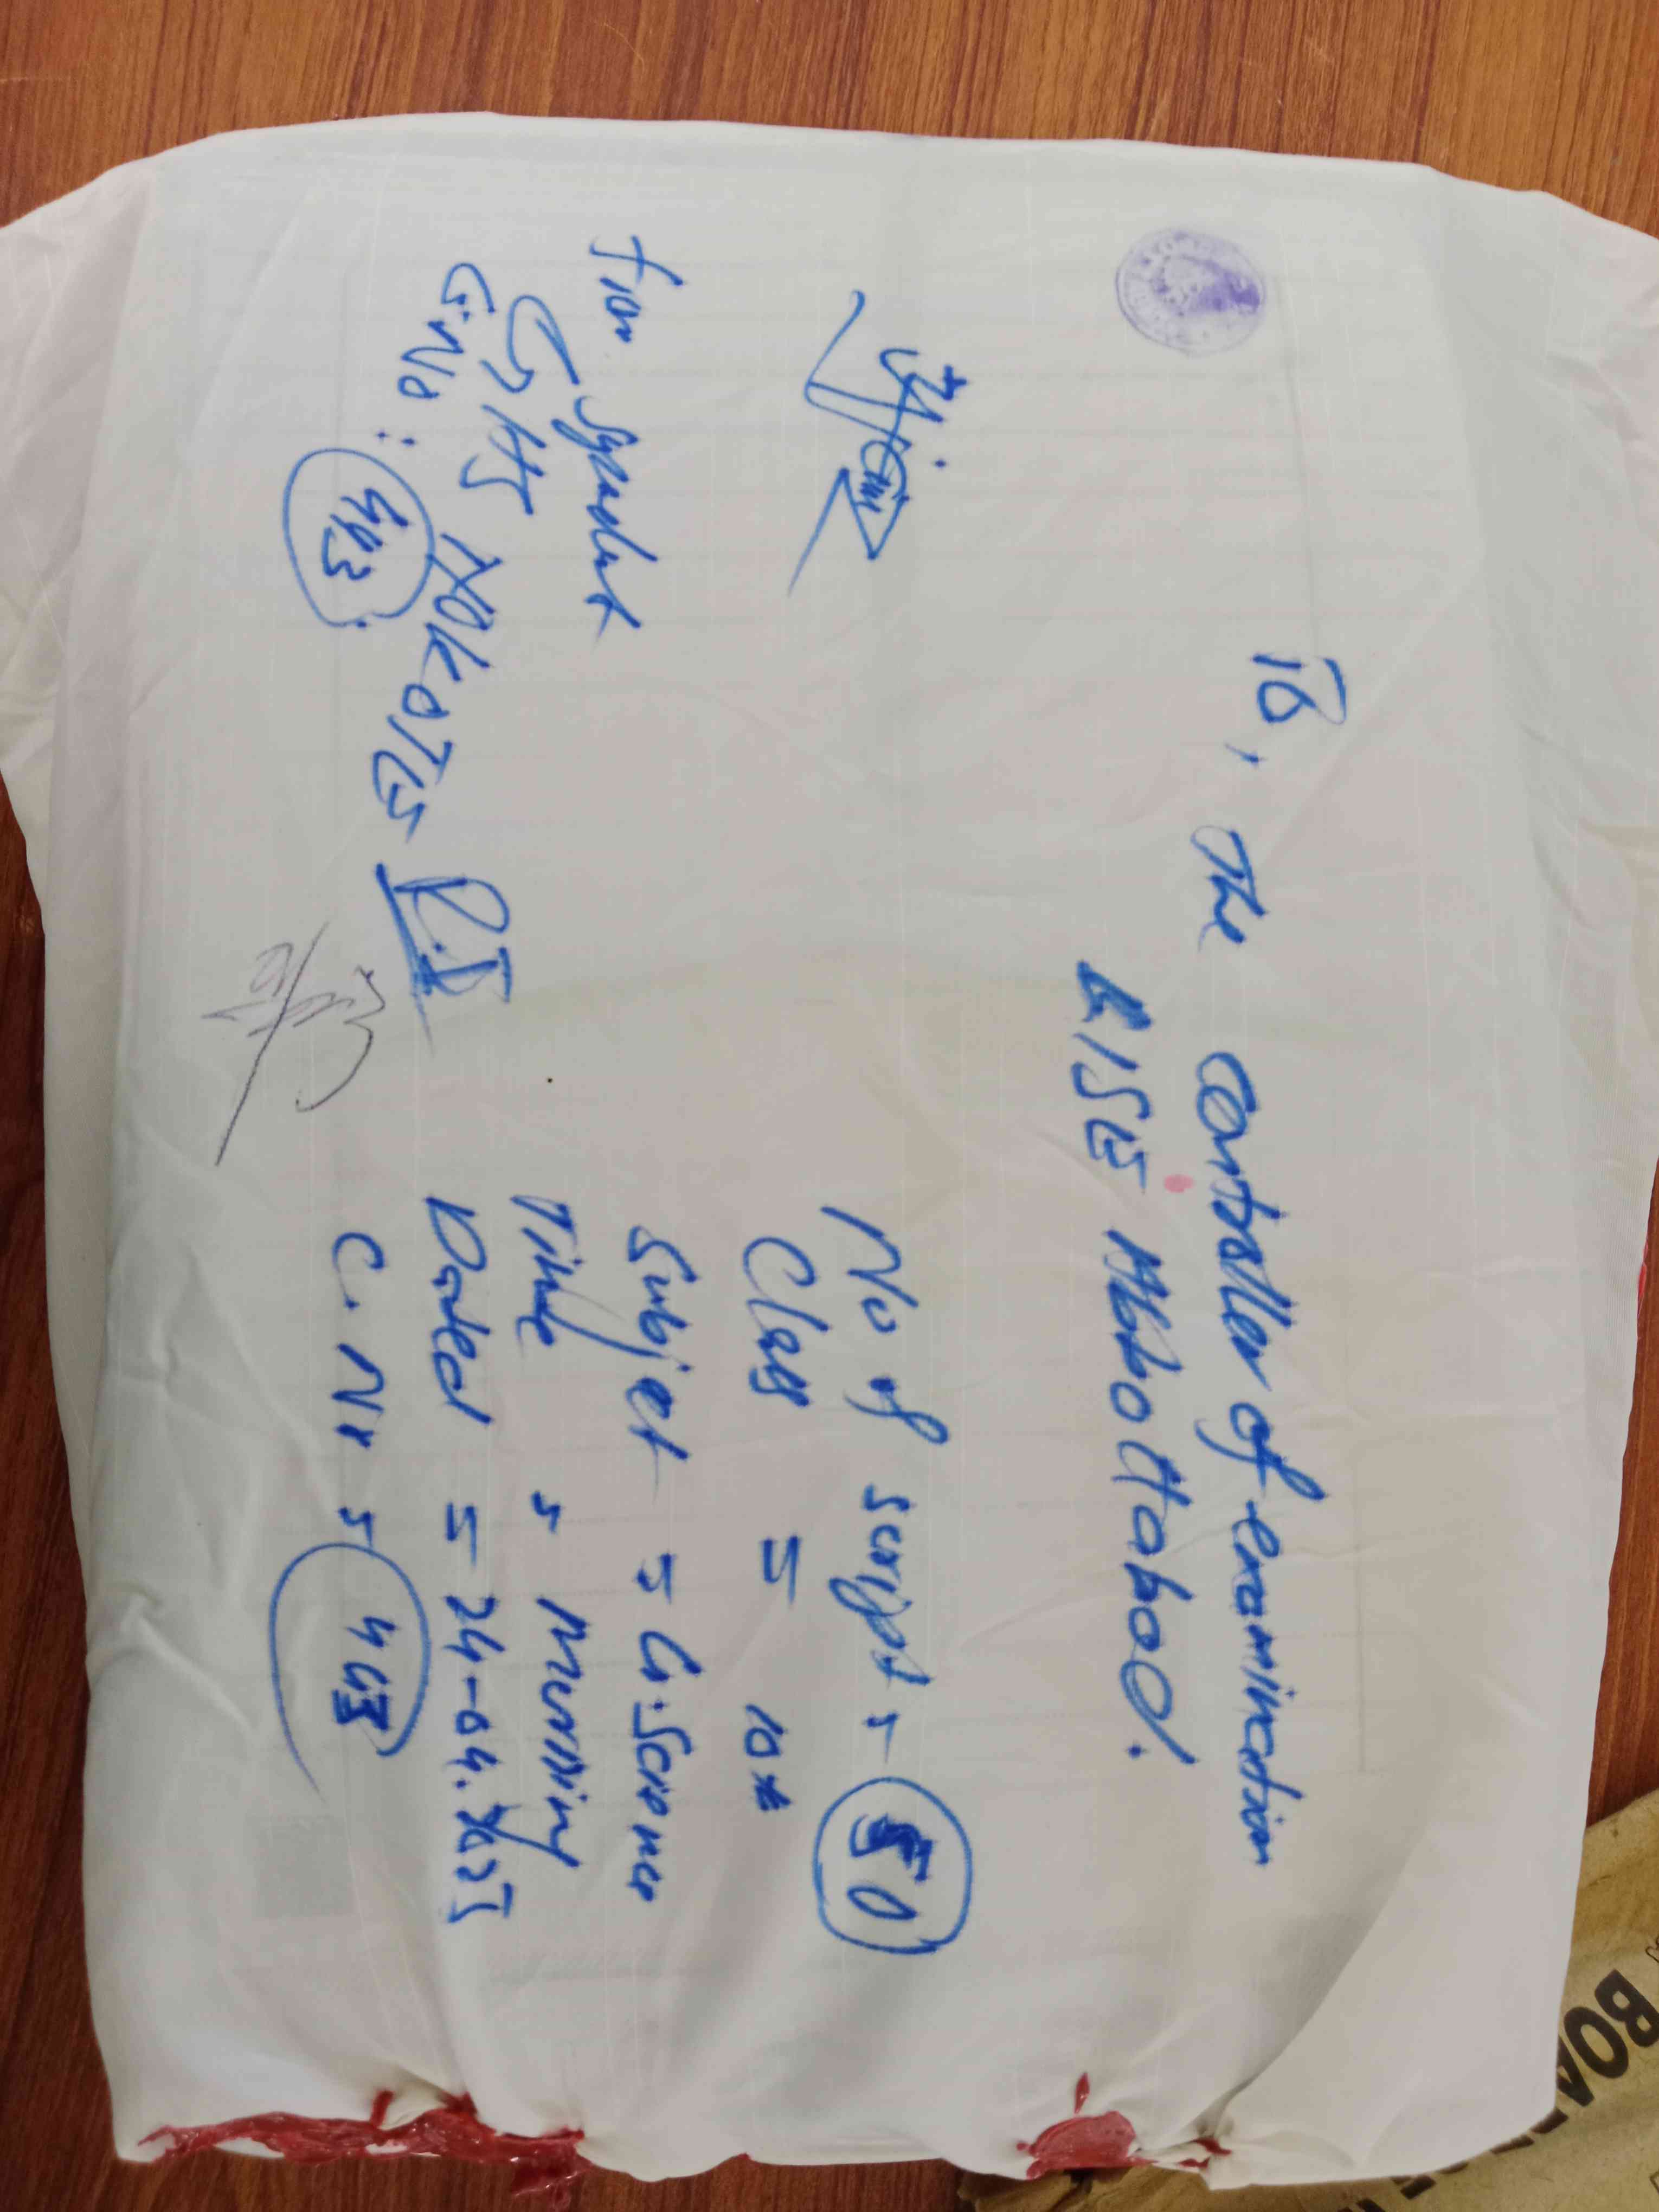 To, The Controller of examination
BISE Abbottabad.
No of script = 50
Class = 10th
Subject = G. Science
Time = Morning
Dated = 24-04.2025
C. No = 443
from Sypendent
GHS NOKOTE
C. No : 443
BOA